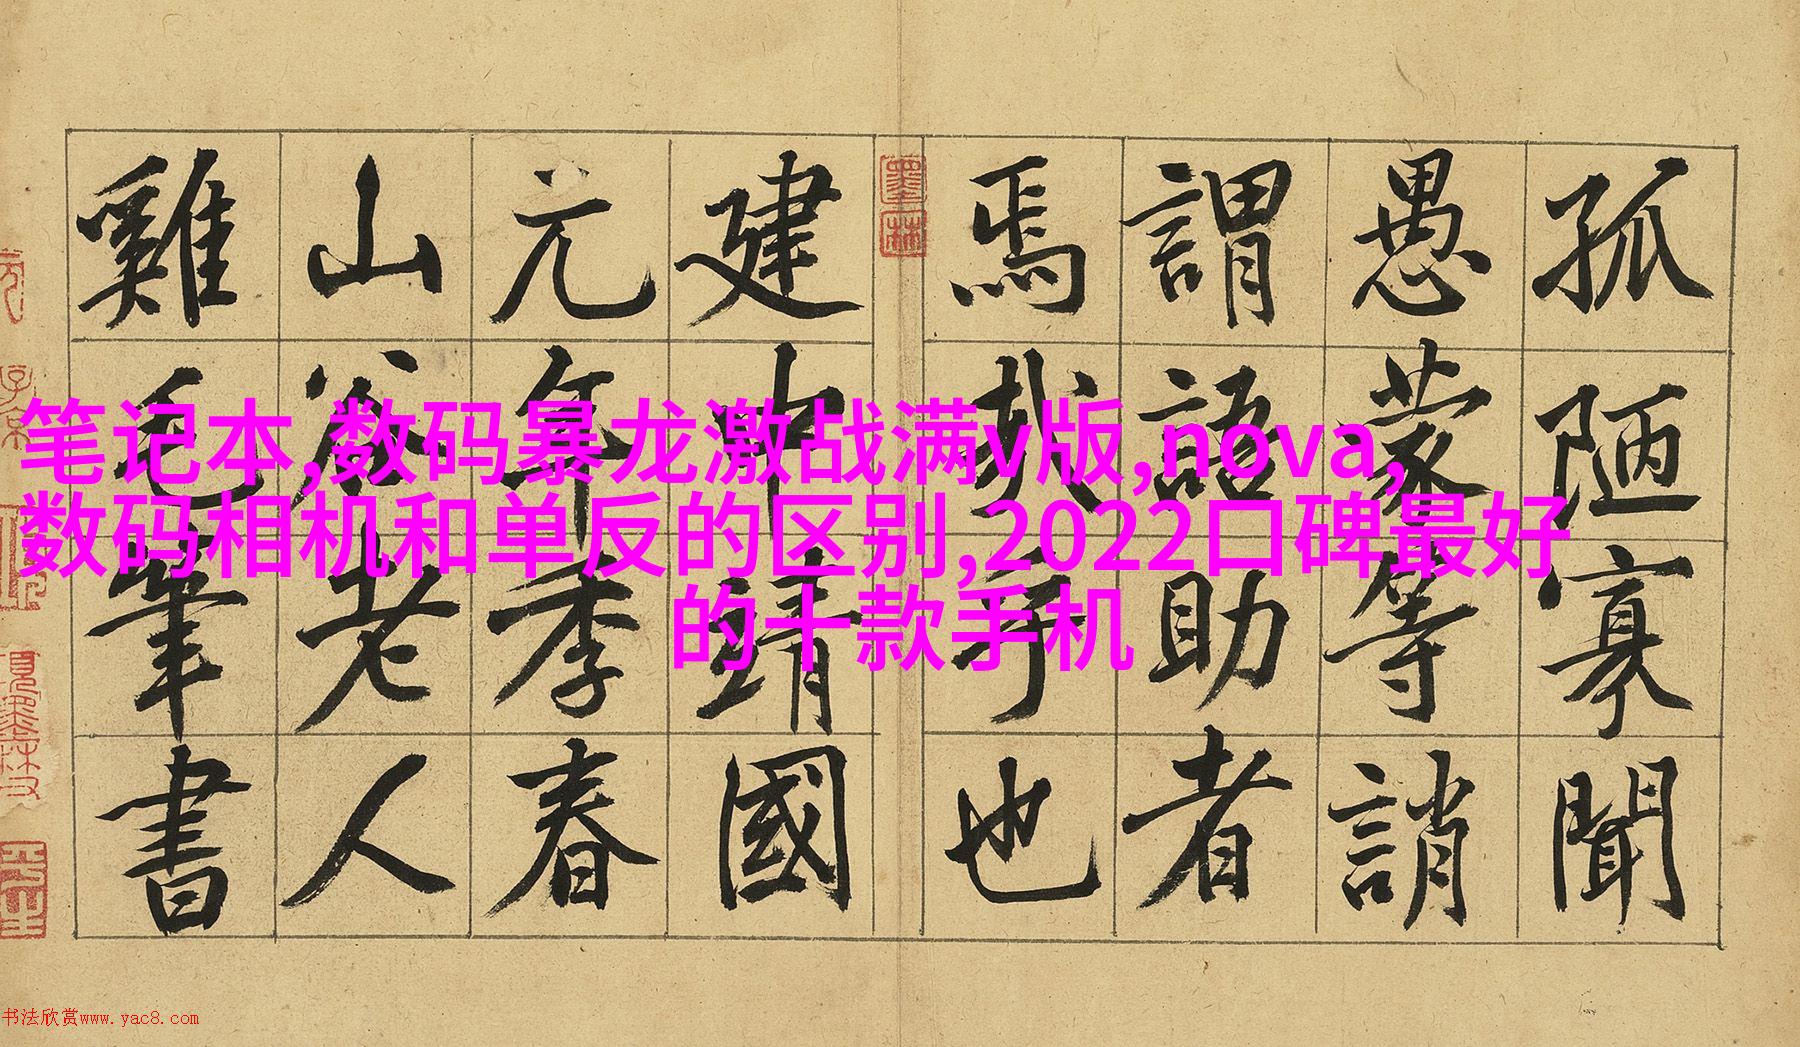 孤陋寡聞
愚蒙等誚
謂語助者
焉哉乎也
建中靖國
元年季春
山谷老人
雞毛筆書
墨林
笔记本,数码暴龙激战满v版,nova,
数码相机和单反的区别,2022口碑最好
的十款手机
书法欣赏www.yac8.com